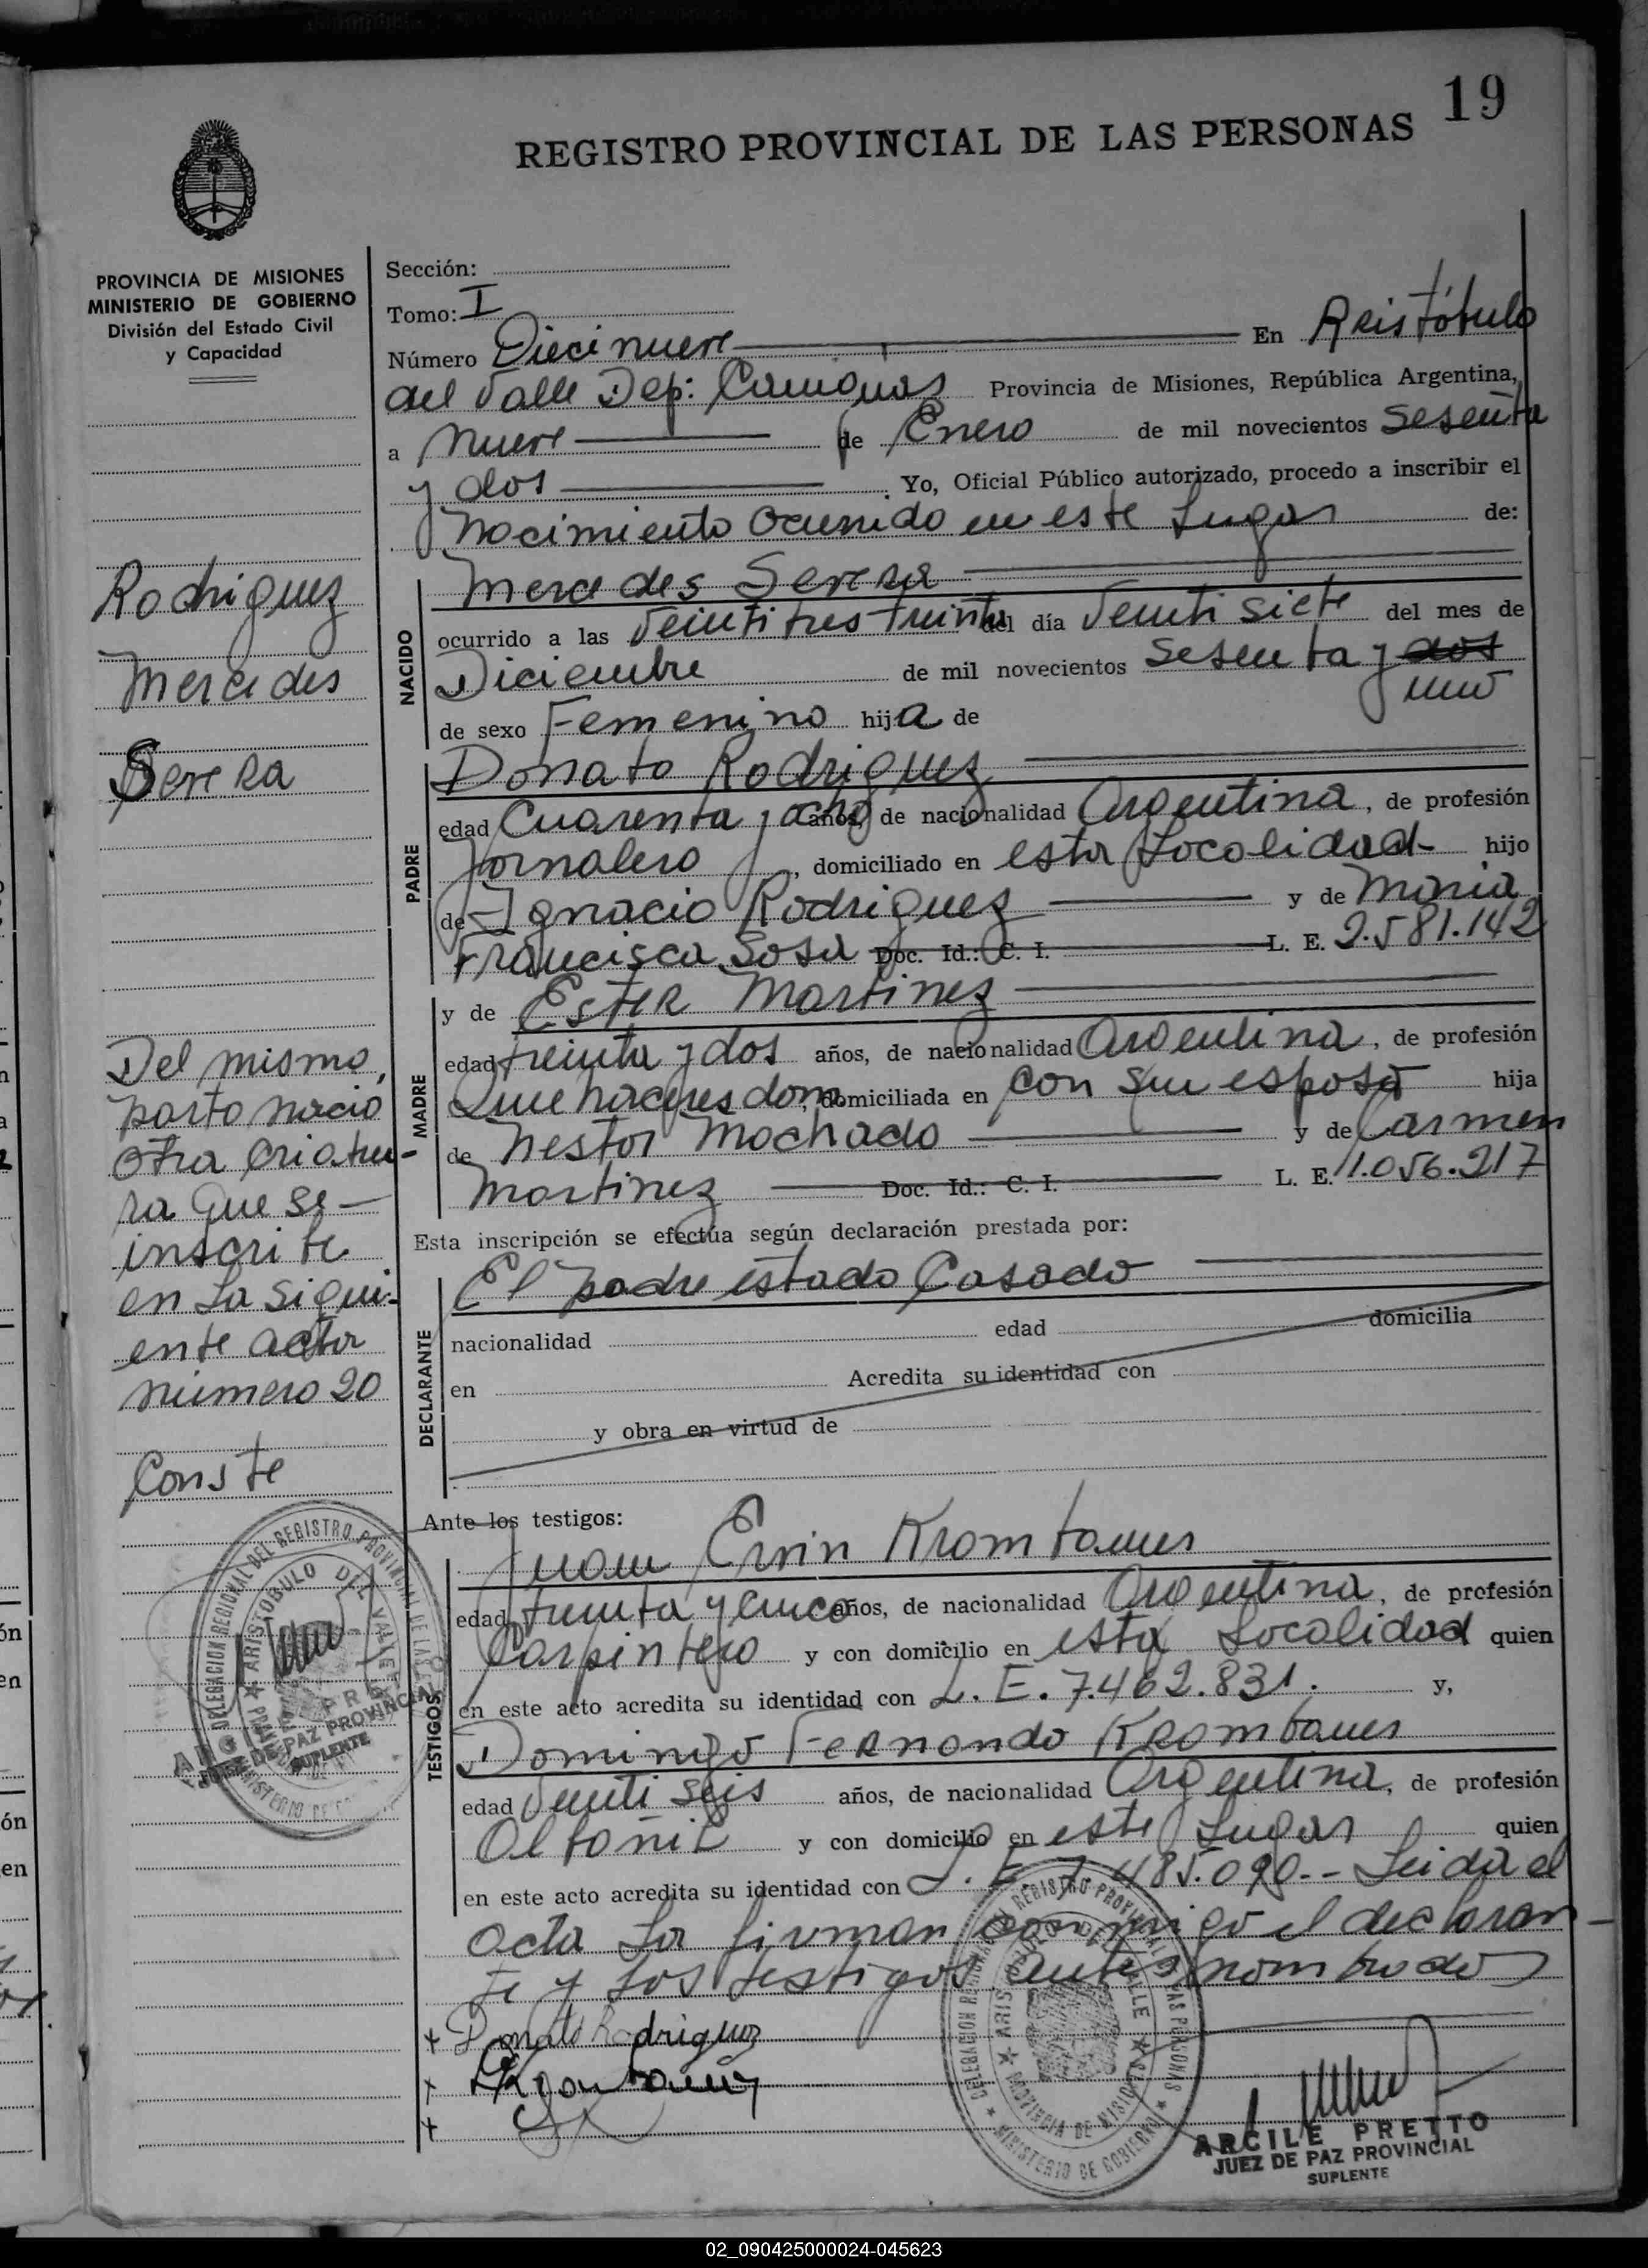 19
REGISTRO PROVINCIAL DE LAS PERSONAS
PROVINCIA DE MISIONES
MINISTERIO DE GOBIERNO
División del Estado Civil
y Capacidad
Rodriguez
Mercedes
Serera
Del mismo
parto nacio
otra criatu-
ra que se
inscribe
en la sigui-
ente acta
número 20
Conste
Sección:
Tomo: I
Número Diecinueve En Aristóbulo
del Valle Dep: Cainguas Provincia de Misiones, República Argentina,
a nueve de Enero de mil novecientos sesenta
y dos Yo, Oficial Público autorizado, procedo a inscribir el
nacimiento ocurrido en este Lugar de:
NACIDO
Mercedes Serera
ocurrido a las Veintitres treinta del día Veinti siete del mes de
Diciembre de mil novecientos sesenta y dos
uno
de sexo Femenino hija de
PADRE
Donato Rodriguez
edad Cuarenta y ocho años, de nacionalidad Argentina, de profesión
Jornalero, domiciliado en esta Localidad hijo
de Ignacio Rodriguez y de Maria
Francisca Sosa Doc. Id.: C. I. L. E. 2.581.142
MADRE
y de Ester Martinez
edad treinta y dos años, de nacionalidad Argentina, de profesión
Quehaceres dom. domiciliada en con su esposo hija
de Nestor Machado y de Carmen
Martinez Doc. Id.: C. I. L. E. 11.056.217
Esta inscripción se efectúa según declaración prestada por:
DECLARANTE
El padre estado Casado
nacionalidad edad domicilia
en Acredita su identidad con
y obra en virtud de
Ante los testigos:
TESTIGOS
Juan Ervin Krombauer
edad treinta y cinco años, de nacionalidad Argentina, de profesión
Carpintero y con domicilio en esta Localidad quien
en este acto acredita su identidad con L. E. 7.462.831. y,
Domingo Fernando Krombauer
edad Veinti seis años, de nacionalidad Argentina, de profesión
Albañil y con domicilio en este Lugar quien
en este acto acredita su identidad con L. E. 7.485.090.- Leida el
acta la firman conmigo el declaran-
te y los testigos antes nombrados
+ Donato Rodriguez
+ Krombauer
+
DELEGACION REGIONAL DEL REGISTRO PROVINCIAL DE LAS PERSONAS
ARISTOBULO DEL VALLE
PROVINCIA DE MISIONES
MINISTERIO DE GOBIERNO
JUEZ DE PAZ PROVINCIAL
SUPLENTE
ARCILE PRETTO
JUEZ DE PAZ PROVINCIAL
SUPLENTE
02_090425000024-045623